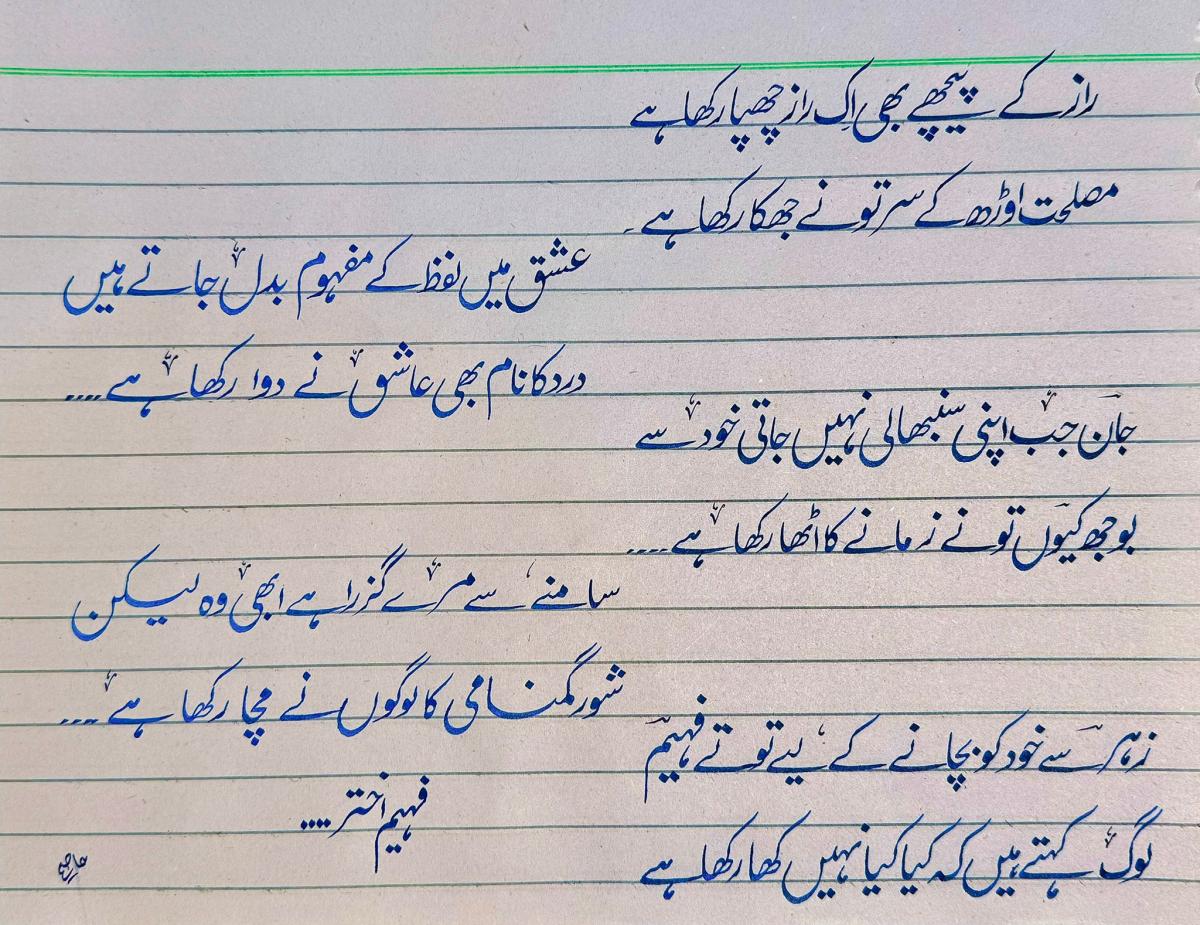 راز کے پیچھے بھی اِک راز چھپا رکھا ہے
مصلحت اوڑھ کے سر تو نے جھکا رکھا ہے۔
عشق میں لفظ کے مفہوم بدل جاتے ہیں
درد کا نام بھی عاشق نے دوا رکھا ہے....
جان جب اپنی سنبھالی نہیں جاتی خود سے
بوجھ کیوں تو نے زمانے کا اٹھا رکھا ہے....
سامنے سے مرے گزرا ہے ابھی وہ لیکن
شور گمنامی کا لوگوں نے مچا رکھا ہے....
زہر سے خود کو بچانے کے لیے تو نے فہیم
لوگ کہتے ہیں کہ کیا کیا نہیں کھا رکھا ہے
فہیم اختر....